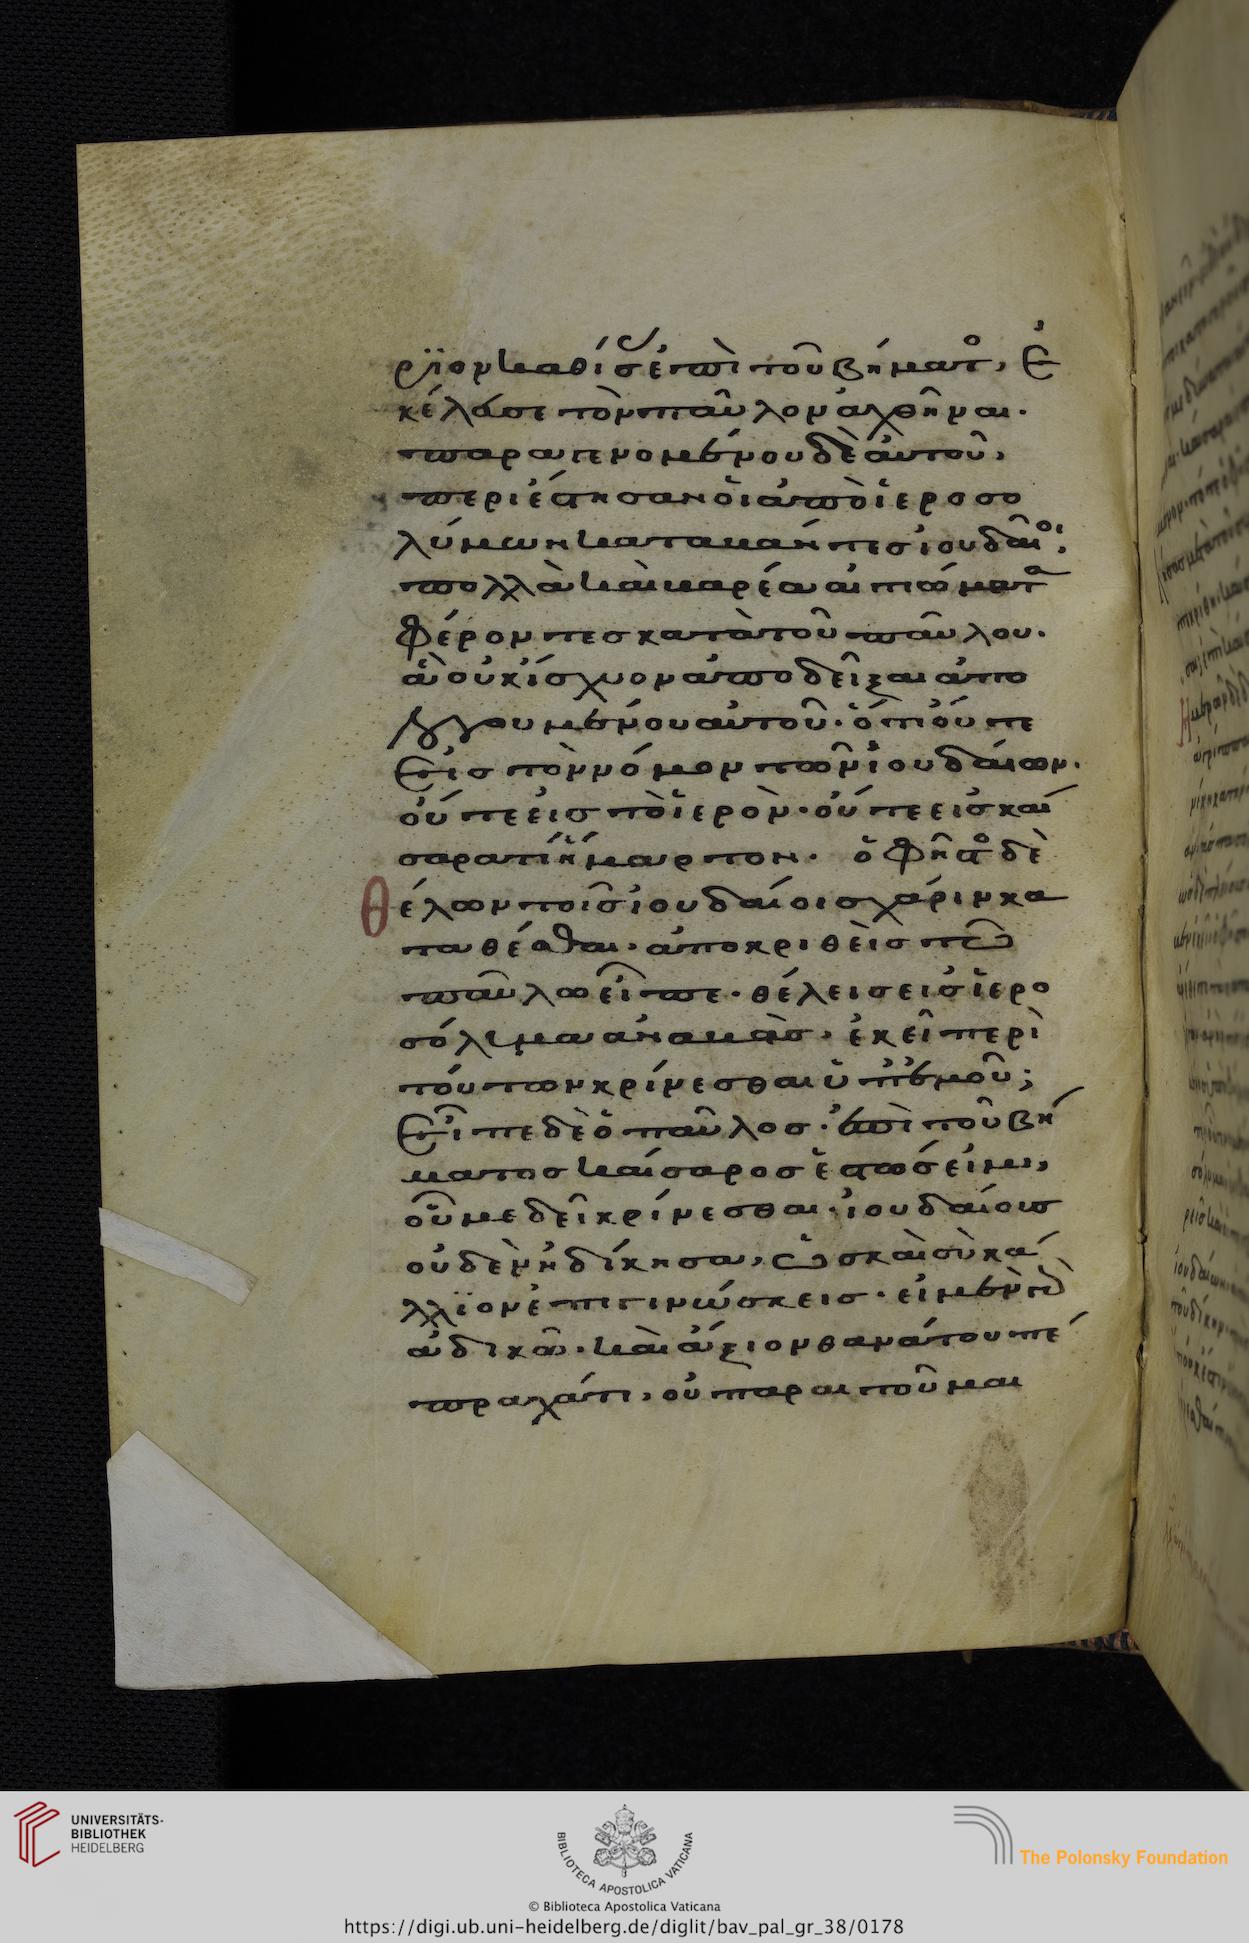 ρϊον καθίσας ἐπὶ τοῦ βήματο, ἐ
κέλευσε τὸν παῦλον ἀχθῆναι.
παραγενομένου δὲ ἀυτοῦ,
περιέστησαν ὁι ἀπὸ ἱεροσο
λύμων καταβάντες ἰουδαῖοι.
πολλὰ καὶ βαρέα αἰτιώματα
φέροντες κατὰ τοῦ παῦλου.
ἃ οὐκ ἴσχυον ἀποδεῖξαι ἀπο
λογουμένου αὐτοῦ. ὅτι οὔτε
εἰς τὸν νόμον τῶν ἰουδαίων.
οὔτε εἰς τὸ ἱερὸν. οὔτε εἰς καί
σαρα τὶ ἥμαρτον. ὁ φῆστο δὲ
θέλων τοῖς ἰουδαίοις χάριν κα
ταθέσθαι. ἀποκριθεὶς τῶ
παῦλω εἶπε. θέλεις εἰς ἱερο
σόλυμα ἀναβὰς. ἐκεῖ περὶ
τούτων κρίνεσθαι ὑπ' ἐμοῦ;
εἶπε δὲ ὁ παῦλος. ἐπὶ τοῦ βή
ματος καίσαρος ἑστώς εἰμι,
οὗ με δεῖ κρίνεσθαι. ἰουδαίους
οὐδὲν ἠδίκησα, ὡς καὶ σὺ κά
λλϊον ἐπιγινώσκεις. εἰ μὲν γὰρ
ἀδικῶ. καὶ ἄξιον θανάτου πέ
πραχά τι, οὐ παραιτοῦμαι
UNIVERSITÄTS-
BIBLIOTHEK
HEIDELBERG
BIBLIOTECA APOSTOLICA VATICANA
The Polonsky Foundation
© Biblioteca Apostolica Vaticana
https://digi.ub.uni-heidelberg.de/diglit/bav_pal_gr_38/0178